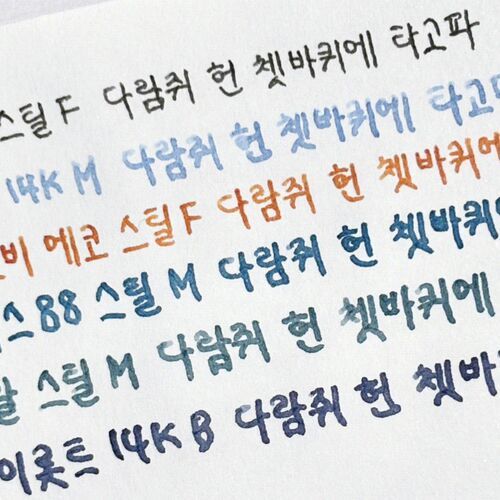 스틸 F 다람쥐 헌 쳇바퀴에 타고파
14K M 다람쥐 헌 쳇바퀴에 타고
비 에코 스틸 F 다람쥐 헌 쳇바퀴에
스88 스틸 M 다람쥐 헌 쳇바퀴
스틸 M 다람쥐 헌 쳇바퀴에
이롯트 14K B 다람쥐 헌 쳇바